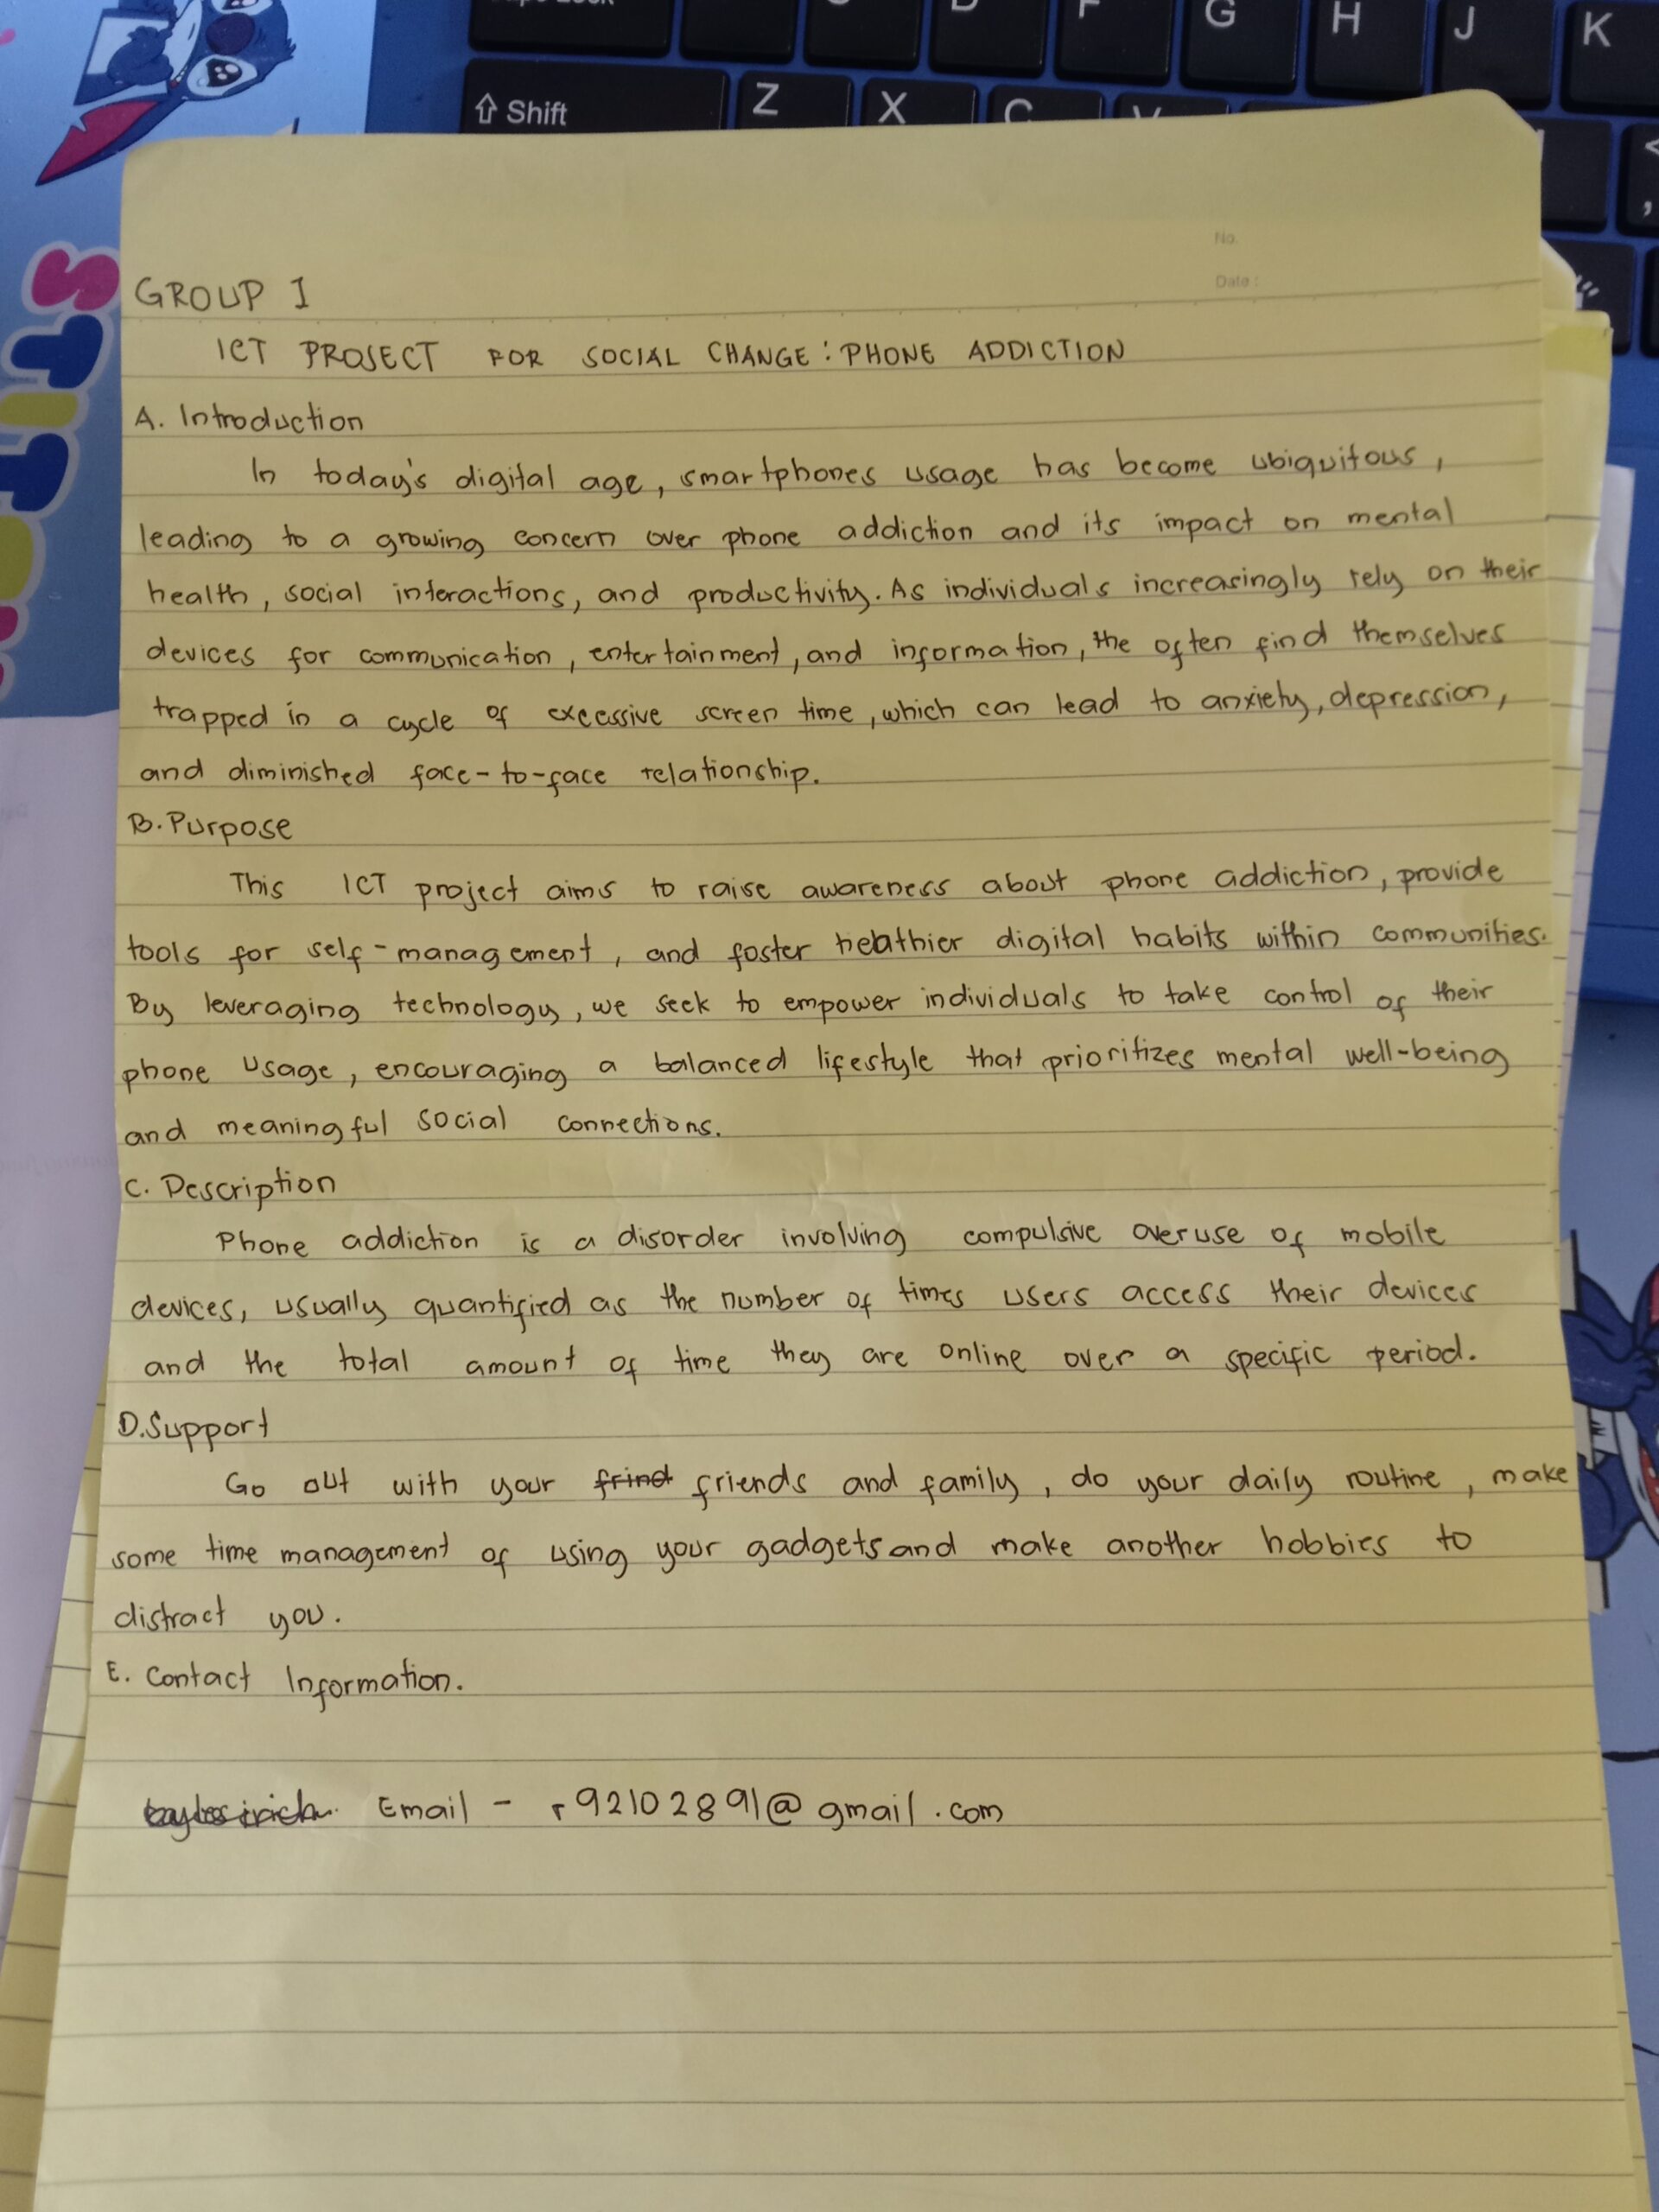 G
H
J
K
Shift
Z
X
C
V
No.
Date:
GROUP I
ICT PROJECT FOR SOCIAL CHANGE: PHONE ADDICTION
A. Introduction
In today's digital age, smartphones usage has become ubiquitous,
leading to a growing concern over phone addiction and its impact on mental
health, social interactions, and productivity. As individuals increasingly rely on their
devices for communication, entertainment, and information, the often find themselves
trapped in a cycle of excessive screen time, which can lead to anxiety, depression,
and diminished face-to-face relationship.
B. Purpose
This ICT project aims to raise awareness about phone addiction, provide
tools for self-management, and foster healthier digital habits within communities.
By leveraging technology, we seek to empower individuals to take control of their
phone usage, encouraging a balanced lifestyle that prioritizes mental well-being
and meaningful social connections.
C. Description
Phone addiction is a disorder involving compulsive overuse of mobile
devices, usually quantified as the number of times users access their devices
and the total amount of time they are online over a specific period.
D. Support
Go out with your frind friends and family, do your daily routine, make
some time management of using your gadgets and make another hobbies to
distract you.
E. Contact Information.
Email - r92102891@gmail.com